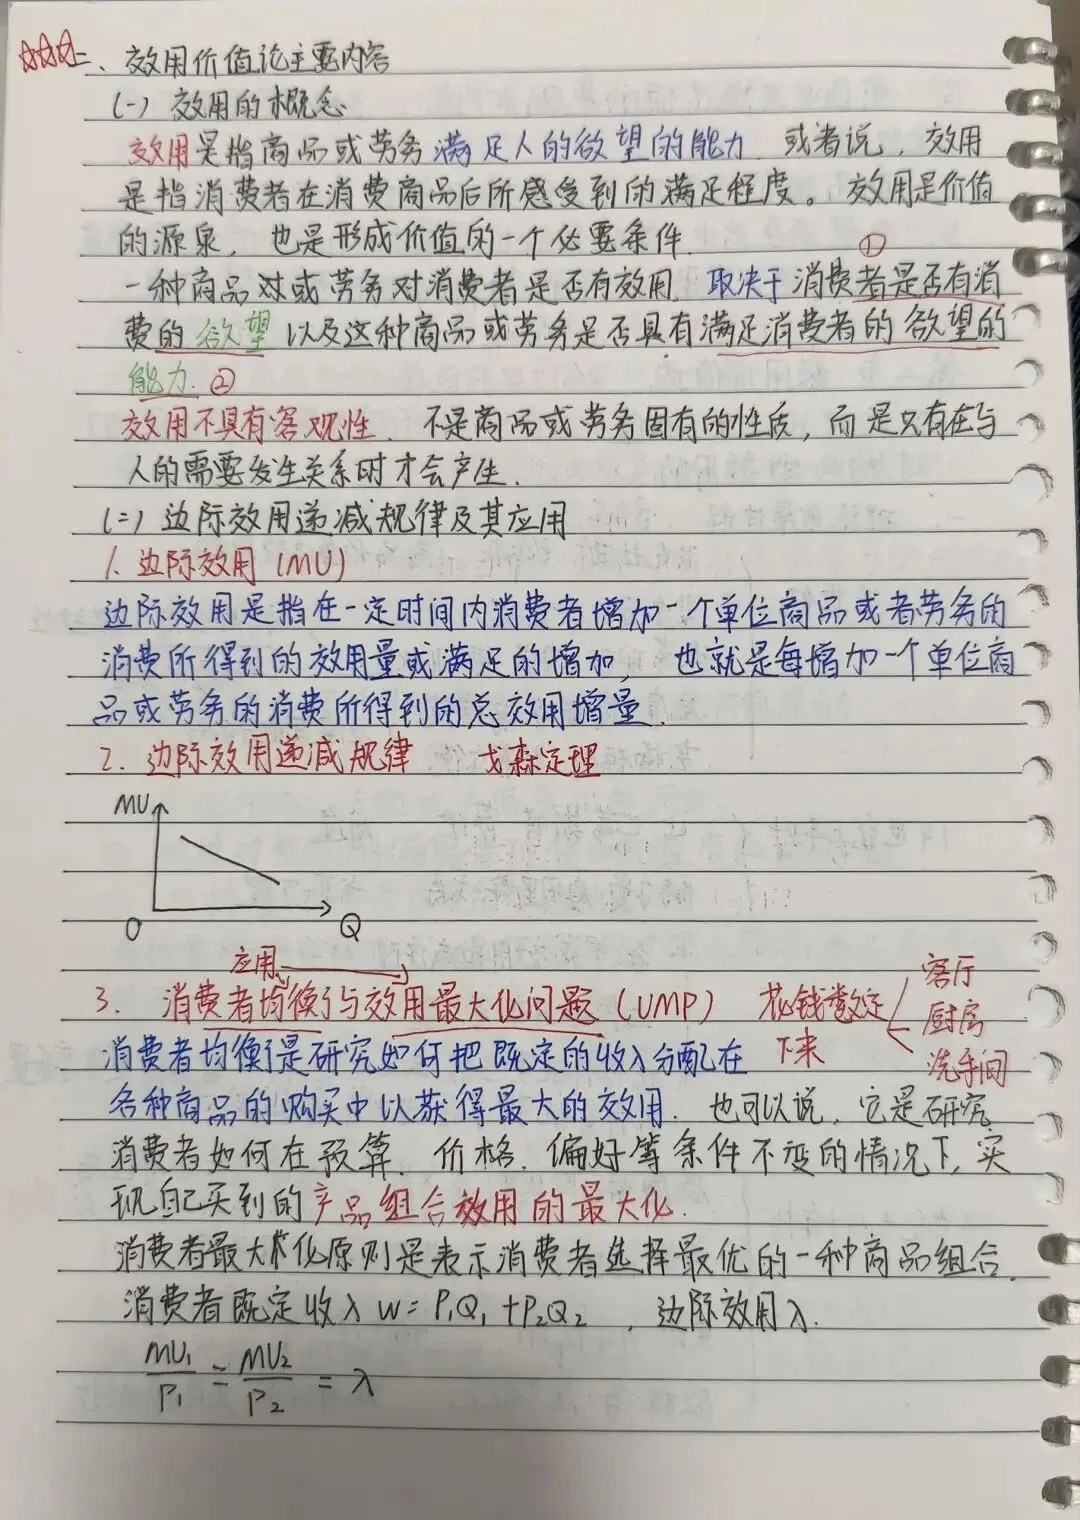 ☆☆☆二、效用价值论主要内容
(一) 效用的概念
效用是指商品或劳务满足人的欲望的能力、或者说，效用
是指消费者在消费商品后所感受到的满足程度。效用是价值
的源泉，也是形成价值的一个必要条件.
①
一种商品对或劳务对消费者是否有效用、取决于消费者是否有消
费的欲望以及这种商品或劳务是否具有满足消费者的欲望的
能力. ②
效用不具有客观性、不是商品或劳务固有的性质，而是只有在与
人的需要发生关系时才会产生.
(二) 边际效用递减规律及其应用
1. 边际效用 (MU)
边际效用是指在一定时间内消费者增加一个单位商品或者劳务的
消费所得到的效用量或满足的增加，也就是每增加一个单位商
品或劳务的消费所得到的总效用增量.
2. 边际效用递减规律 戈森定理
MU
O Q
应用
3. 消费者均衡与效用最大化问题 (UMP) 花钱数定
下来
客厅
厨房
洗手间
消费者均衡是研究如何把既定的收入分配在
各种商品的购买中以获得最大的效用. 也可以说，它是研究
消费者如何在预算、价格、偏好等条件不变的情况下，实
现自己买到的产品组合效用的最大化.
消费者最大化原则是表示消费者选择最优的一种商品组合.
消费者既定收入 W = P₁Q₁ + P₂Q₂ ，边际效用λ.
MU₁/P₁ = MU₂/P₂ = λ